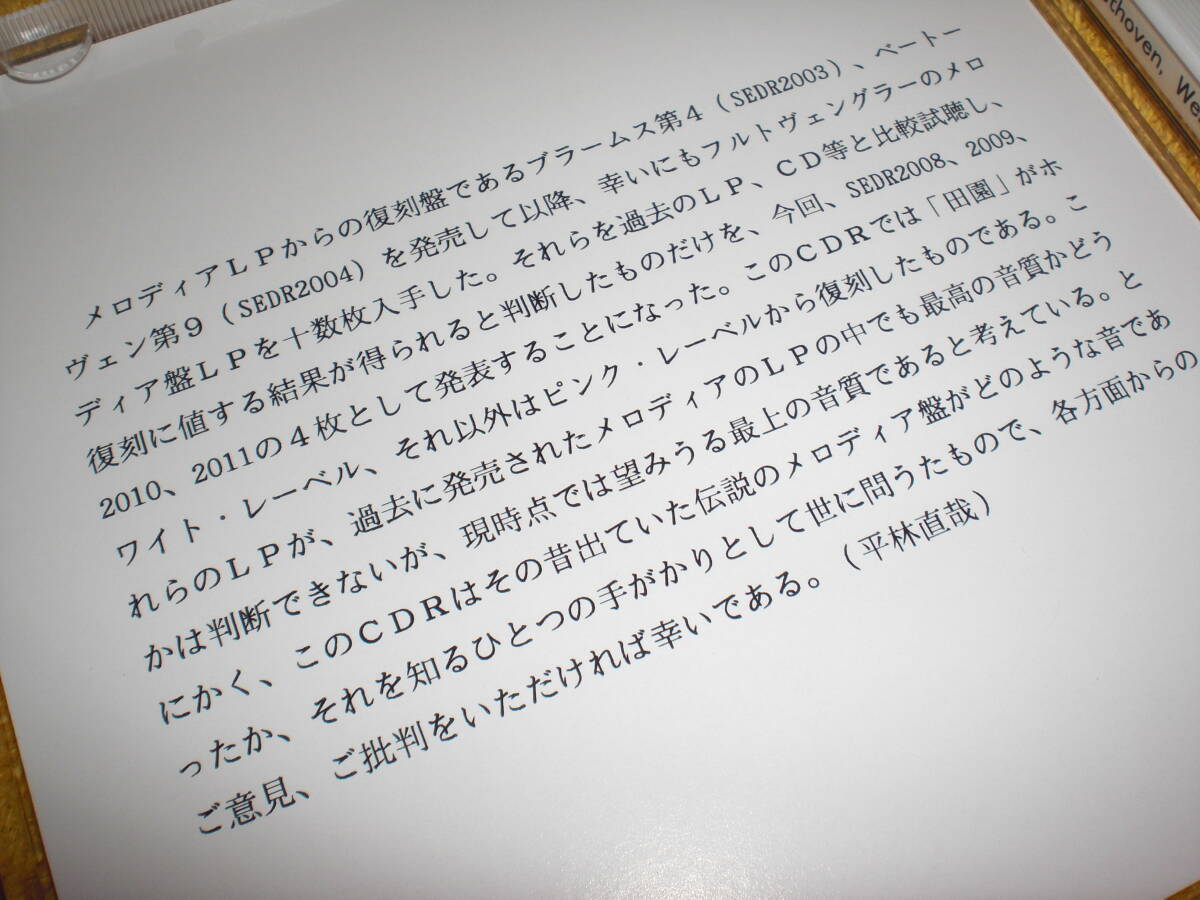 メロディアLPからの復刻盤であるブラームス第4(SEDR2003)、ベートー
ヴェン第9(SEDR2004)を発売して以降、幸いにもフルトヴェングラーのメロ
ディア盤LPを十数枚入手した。それらを過去のLP、CD等と比較試聴し、
復刻に値する結果が得られると判断したものだけを、今回、SEDR2008、2009、
2010、2011の4枚として発表することになった。このCDRでは「田園」がホ
ワイト・レーベル、それ以外はピンク・レーベルから復刻したものである。こ
れらのLPが、過去に発売されたメロディアのLPの中でも最高の音質かどう
かは判断できないが、現時点では望みうる最上の音質であると考えている。と
にかく、このCDRはその昔出ていた伝説のメロディア盤がどのような音であ
ったか、それを知るひとつの手がかりとして世に問うたもので、各方面からの
ご意見、ご批判をいただければ幸いである。(平林直哉)